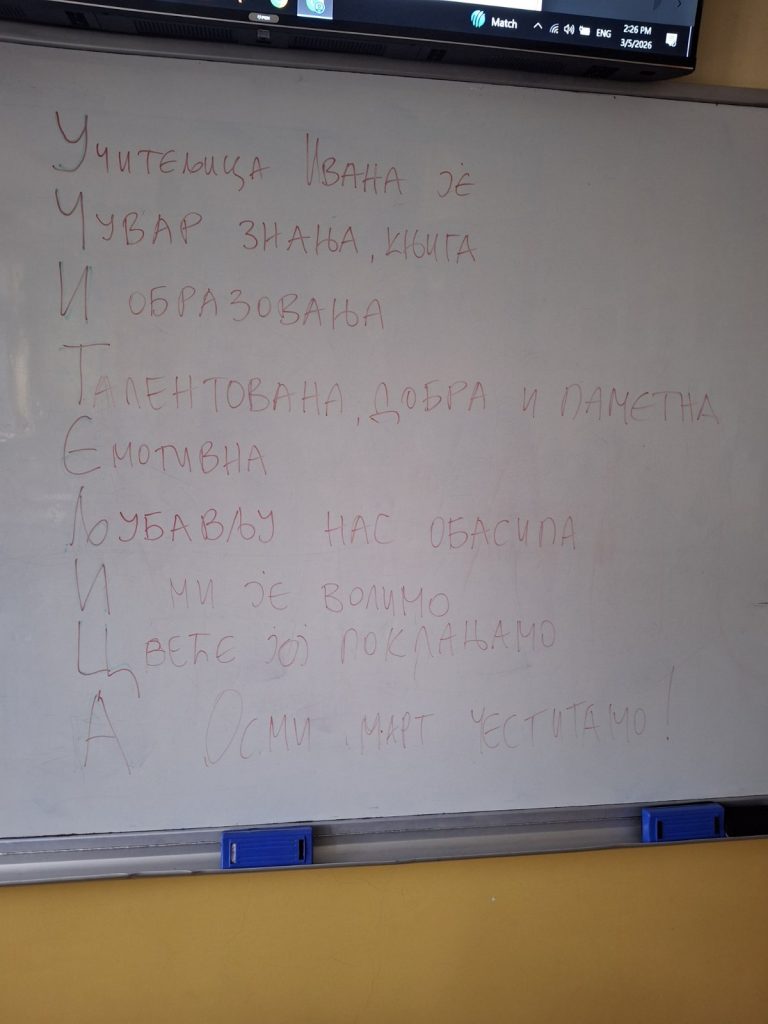 Match ENG 2:26 PM
3/5/2026
Учитељица Ивана је
Чувар знања, књига
И образовања
Талентована, добра и паметна
Емотивна
Љубављу нас обасипа
И ми је волимо
Цвеће јој поклањамо
А Осми март честитамо!